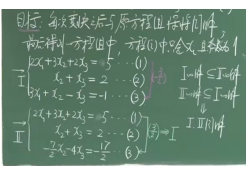 目标: 每次变换之后与原方程组保持同解
最后得到一方程组中, 方程(1)中含x₁且系数为1
I
2x₁+3x₂+2x₃=5 …(1)
x₂+x₃=2 …(2)
3x₁+x₂-x₃=-1 …(3)
I ⊆ II
II ⊆ I
II
2x₁+3x₂+2x₃=5 …(1)
x₂+x₃=2 …(2)
-7/2x₂-4x₃=-17/2 …(3)
→ I
I, II 同解